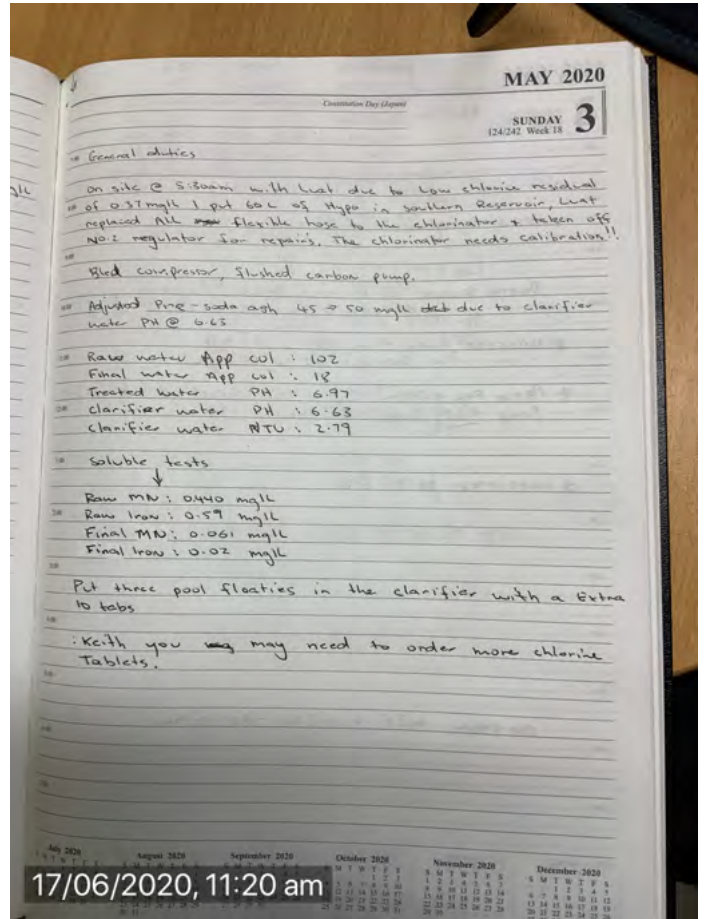 MAY 2020
Constitution Day (Japan)
SUNDAY
124/242 Week 18
3
General duties
on site @ 5:30am with Luat due to Low chlorine residual
of 0.37mg/L I put 60L of Hypo in southern Reservoir, Luat
replaced flexible hose to the chlorinator & taken off
NO.2 regulator for repairs, The chlorinator needs calibration!!
Bled compressor, flushed carbon pump.
Adjusted Pre-soda ash 45 → 50 mg/L due to clarifier
water PH @ 6.63
Raw water App col : 102
Final water App col : 18
Treated water PH : 6.97
clarifier water PH : 6.63
clarifier water NTU : 2.79
soluble tests
↓
Raw MN : 0.440 mg/L
Raw Iron : 0.59 mg/L
Final MN : 0.061 mg/L
Final Iron : 0.02 mg/L
Put three pool floaties in the clarifier with a Extra
10 tabs
: Keith you may need to order more chlorine
Tablets.
July 2020
August 2020
September 2020
October 2020
November 2020
December 2020
17/06/2020, 11:20 am